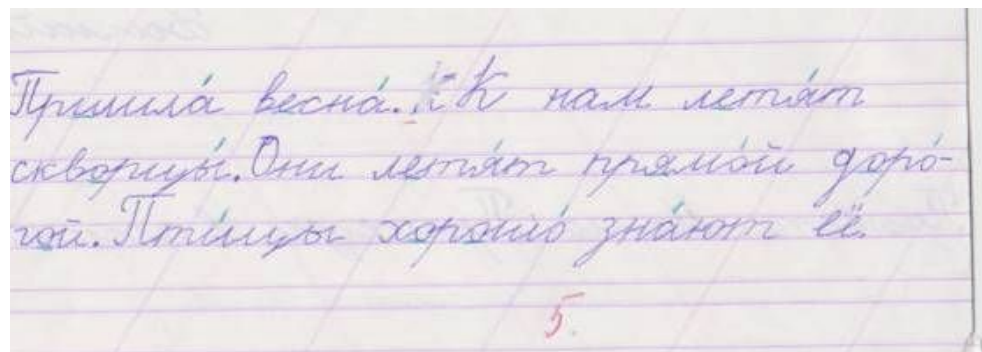 Пришла́ весна́. К нам летя́т
скворцы́. Они летя́т прямо́й доро́-
гой. Пти́цы хорошо́ зна́ют её.
5.